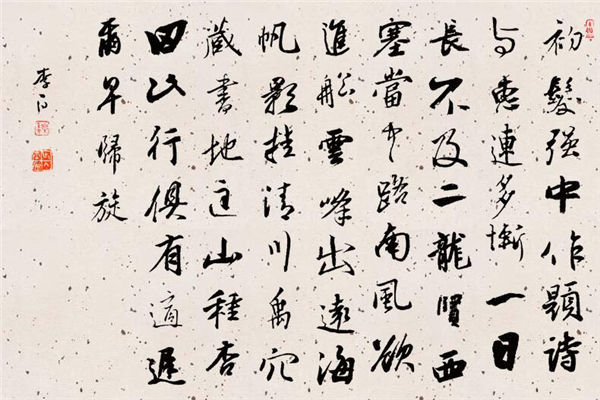 初髮强中作題詩
与惠連多慚一日
長不及二龍賢西
塞當中路南風欲
進船雲峰出遠海
帆影挂清川禹穴
藏書地匡山種杏
田此行俱有適遲
爾早歸旋
李白